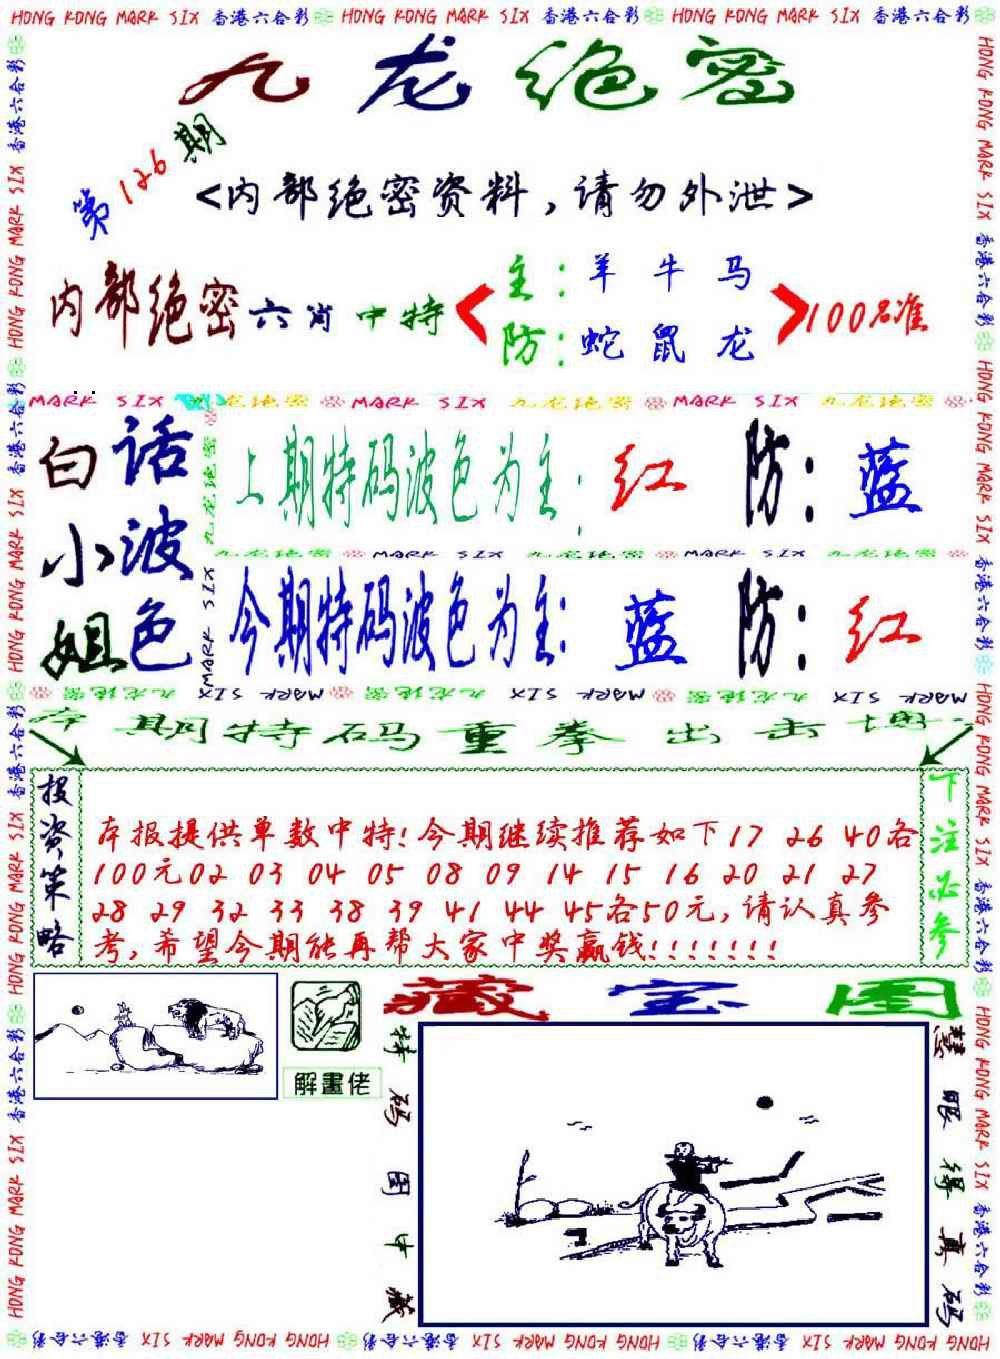 HONG KONG MARK SIX 香港六合彩 HONG KONG MARK SIX 香港六合彩 HONG KONG MARK SIX 香港六合彩
九龙绝密
第126期
<内部绝密资料,请勿外泄>
内部绝密六肖中特
主:羊 牛 马
防:蛇 鼠 龙
100%准
MARK SIX 九龙绝密 MARK SIX 九龙绝密 MARK SIX 九龙绝密
白话
小波
姐色
上期特码波色为主:红 防:蓝
九龙绝密 MARK SIX 九龙绝密 MARK SIX 九龙绝密
今期特码波色为主:蓝 防:红
九龙绝密 MARK SIX 九龙绝密 MARK SIX 九龙绝密 MARK SIX
本期特码重拳出击
投资策略
本报提供单数中特!今期继续推荐如下17 26 40各
100元02 03 04 05 08 09 14 15 16 20 21 27
28 29 32 33 38 39 41 44 45各50元,请认真参
考,希望今期能再帮大家中奖赢钱!!!!!!!
下注必参
解畫佬
藏宝图
特码图中藏
慧眼得真码
HONG KONG MARK SIX 香港六合彩 HONG KONG MARK SIX 香港六合彩 HONG KONG MARK SIX 香港六合彩